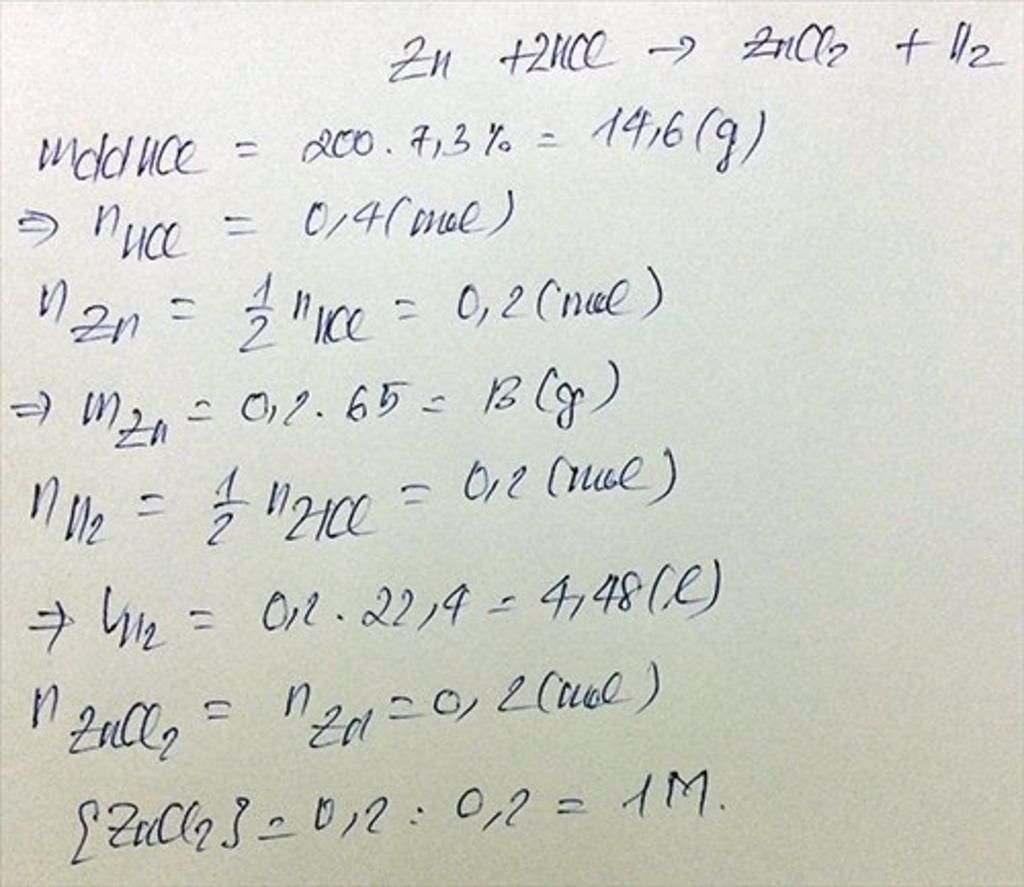 Zn + 2HCl → ZnCl₂ + H₂
mddHCl = 200 . 7,3% = 14,6 (g)
⇒ nHCl = 0,4 (mol)
nZn = 1/2 nHCl = 0,2 (mol)
⇒ mZn = 0,2 . 65 = 13 (g)
nH₂ = 1/2 n2HCl = 0,2 (mol)
⇒ VH₂ = 0,2 . 22,4 = 4,48 (l)
nZnCl₂ = nZn = 0,2 (mol)
{ZnCl₂} = 0,2 : 0,2 = 1M.